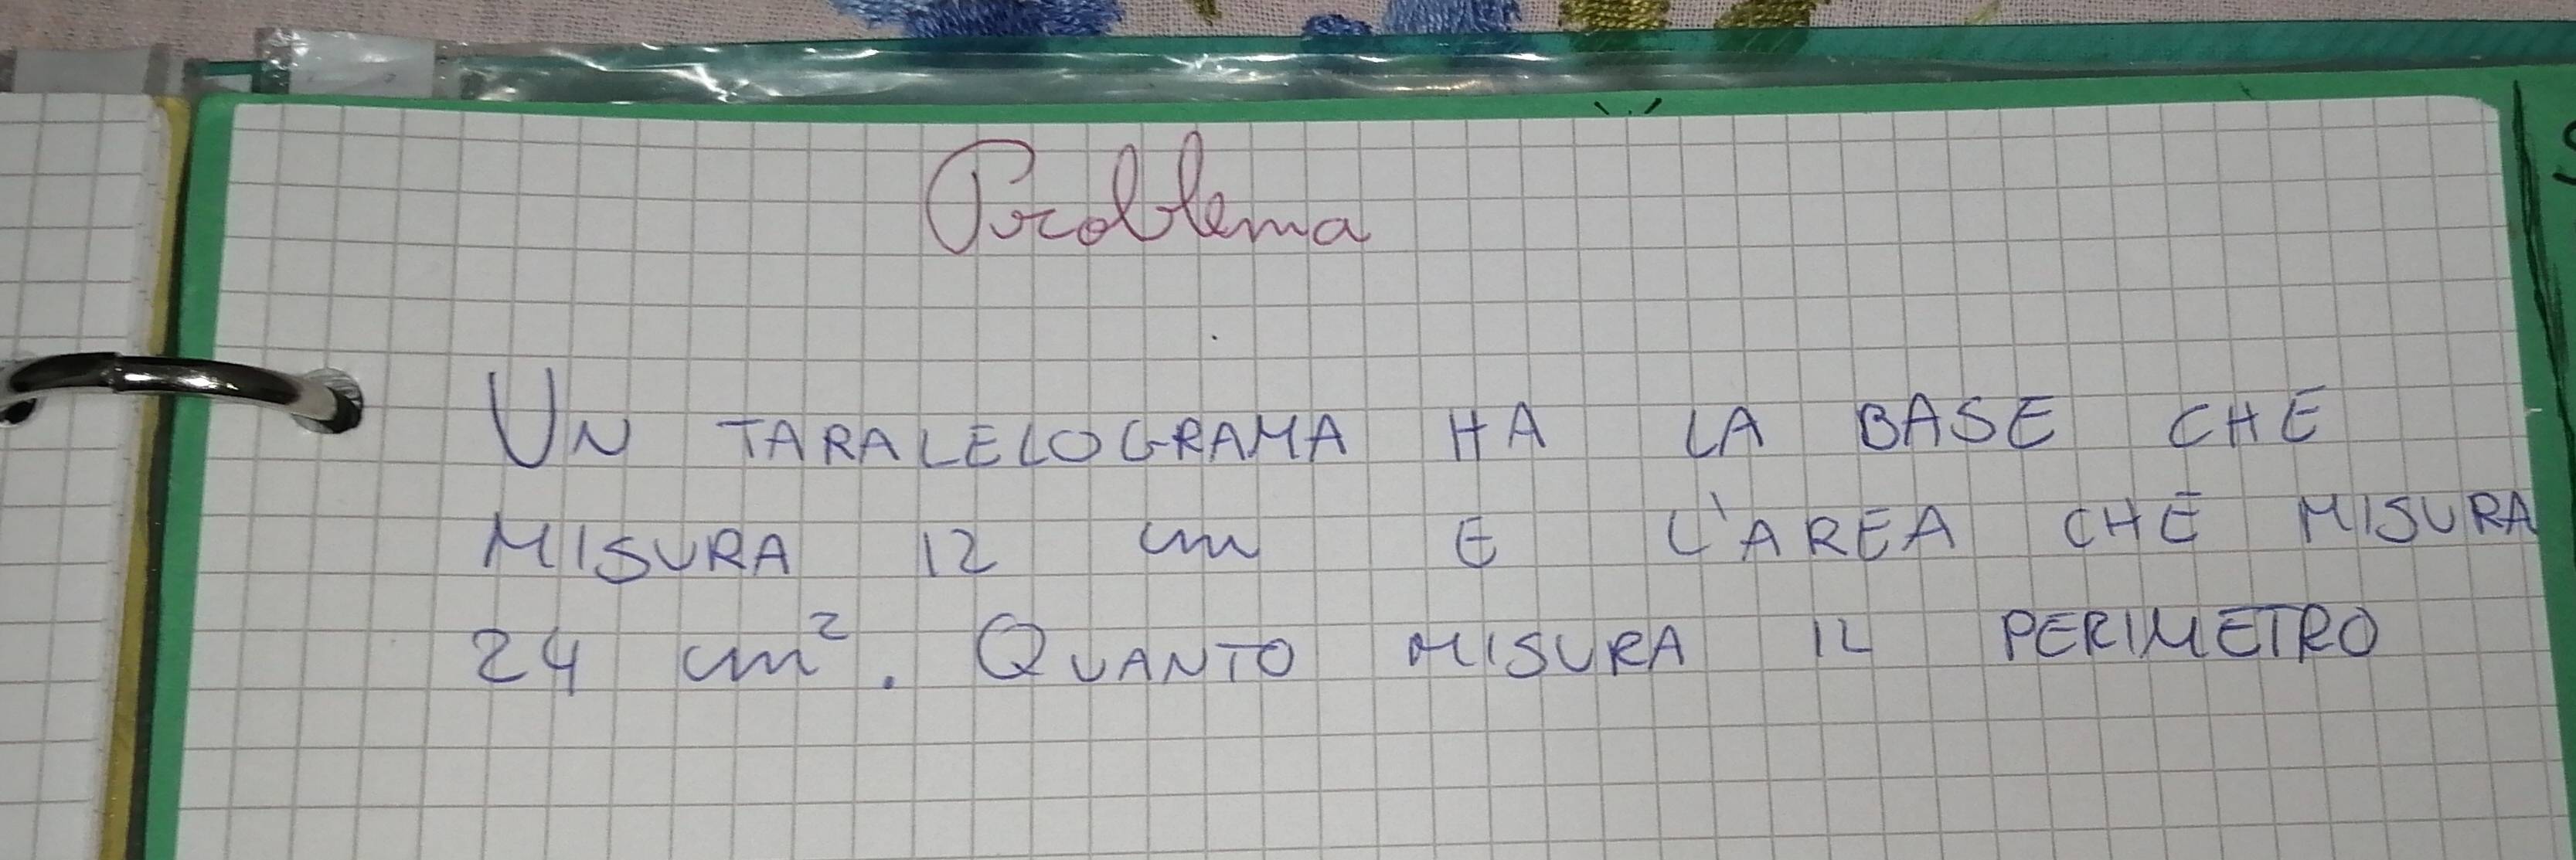 Problema
UN TARALELOGRAMA HA LA BASE CHE
MISURA 12 cm E L'AREA CHE MISURA
24 cm². QUANTO MISURA IL PERIMETRO